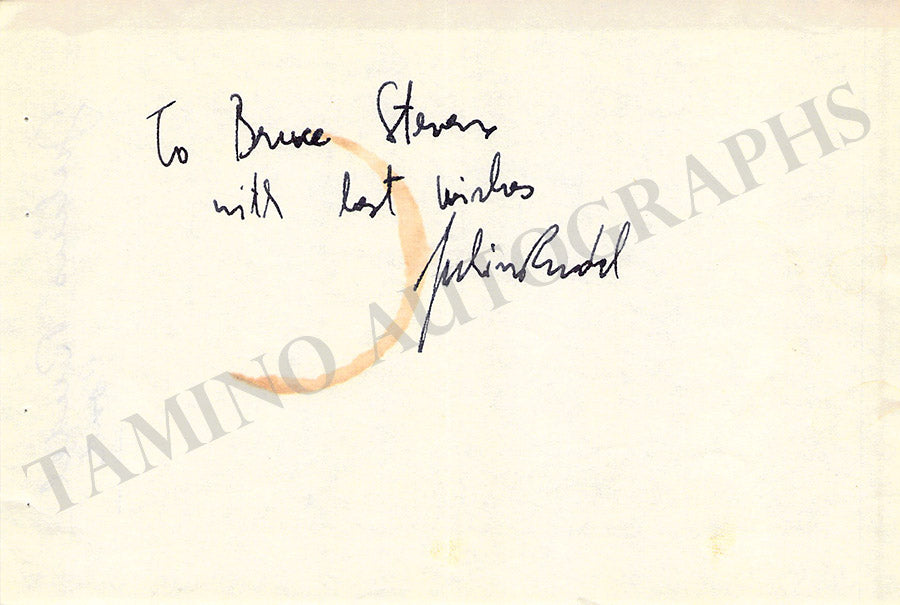 To Bruce Stevens
with best wishes
Julius Rudel
TAMINO AUTOGRAPHS